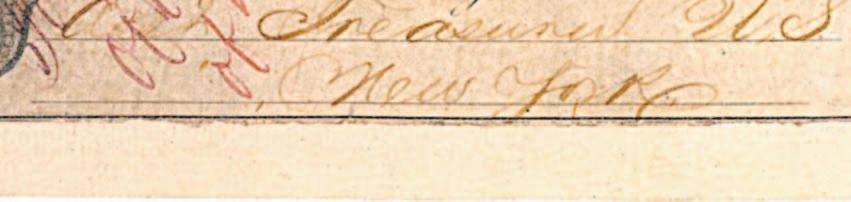 Asst Treasurer U.S
New York